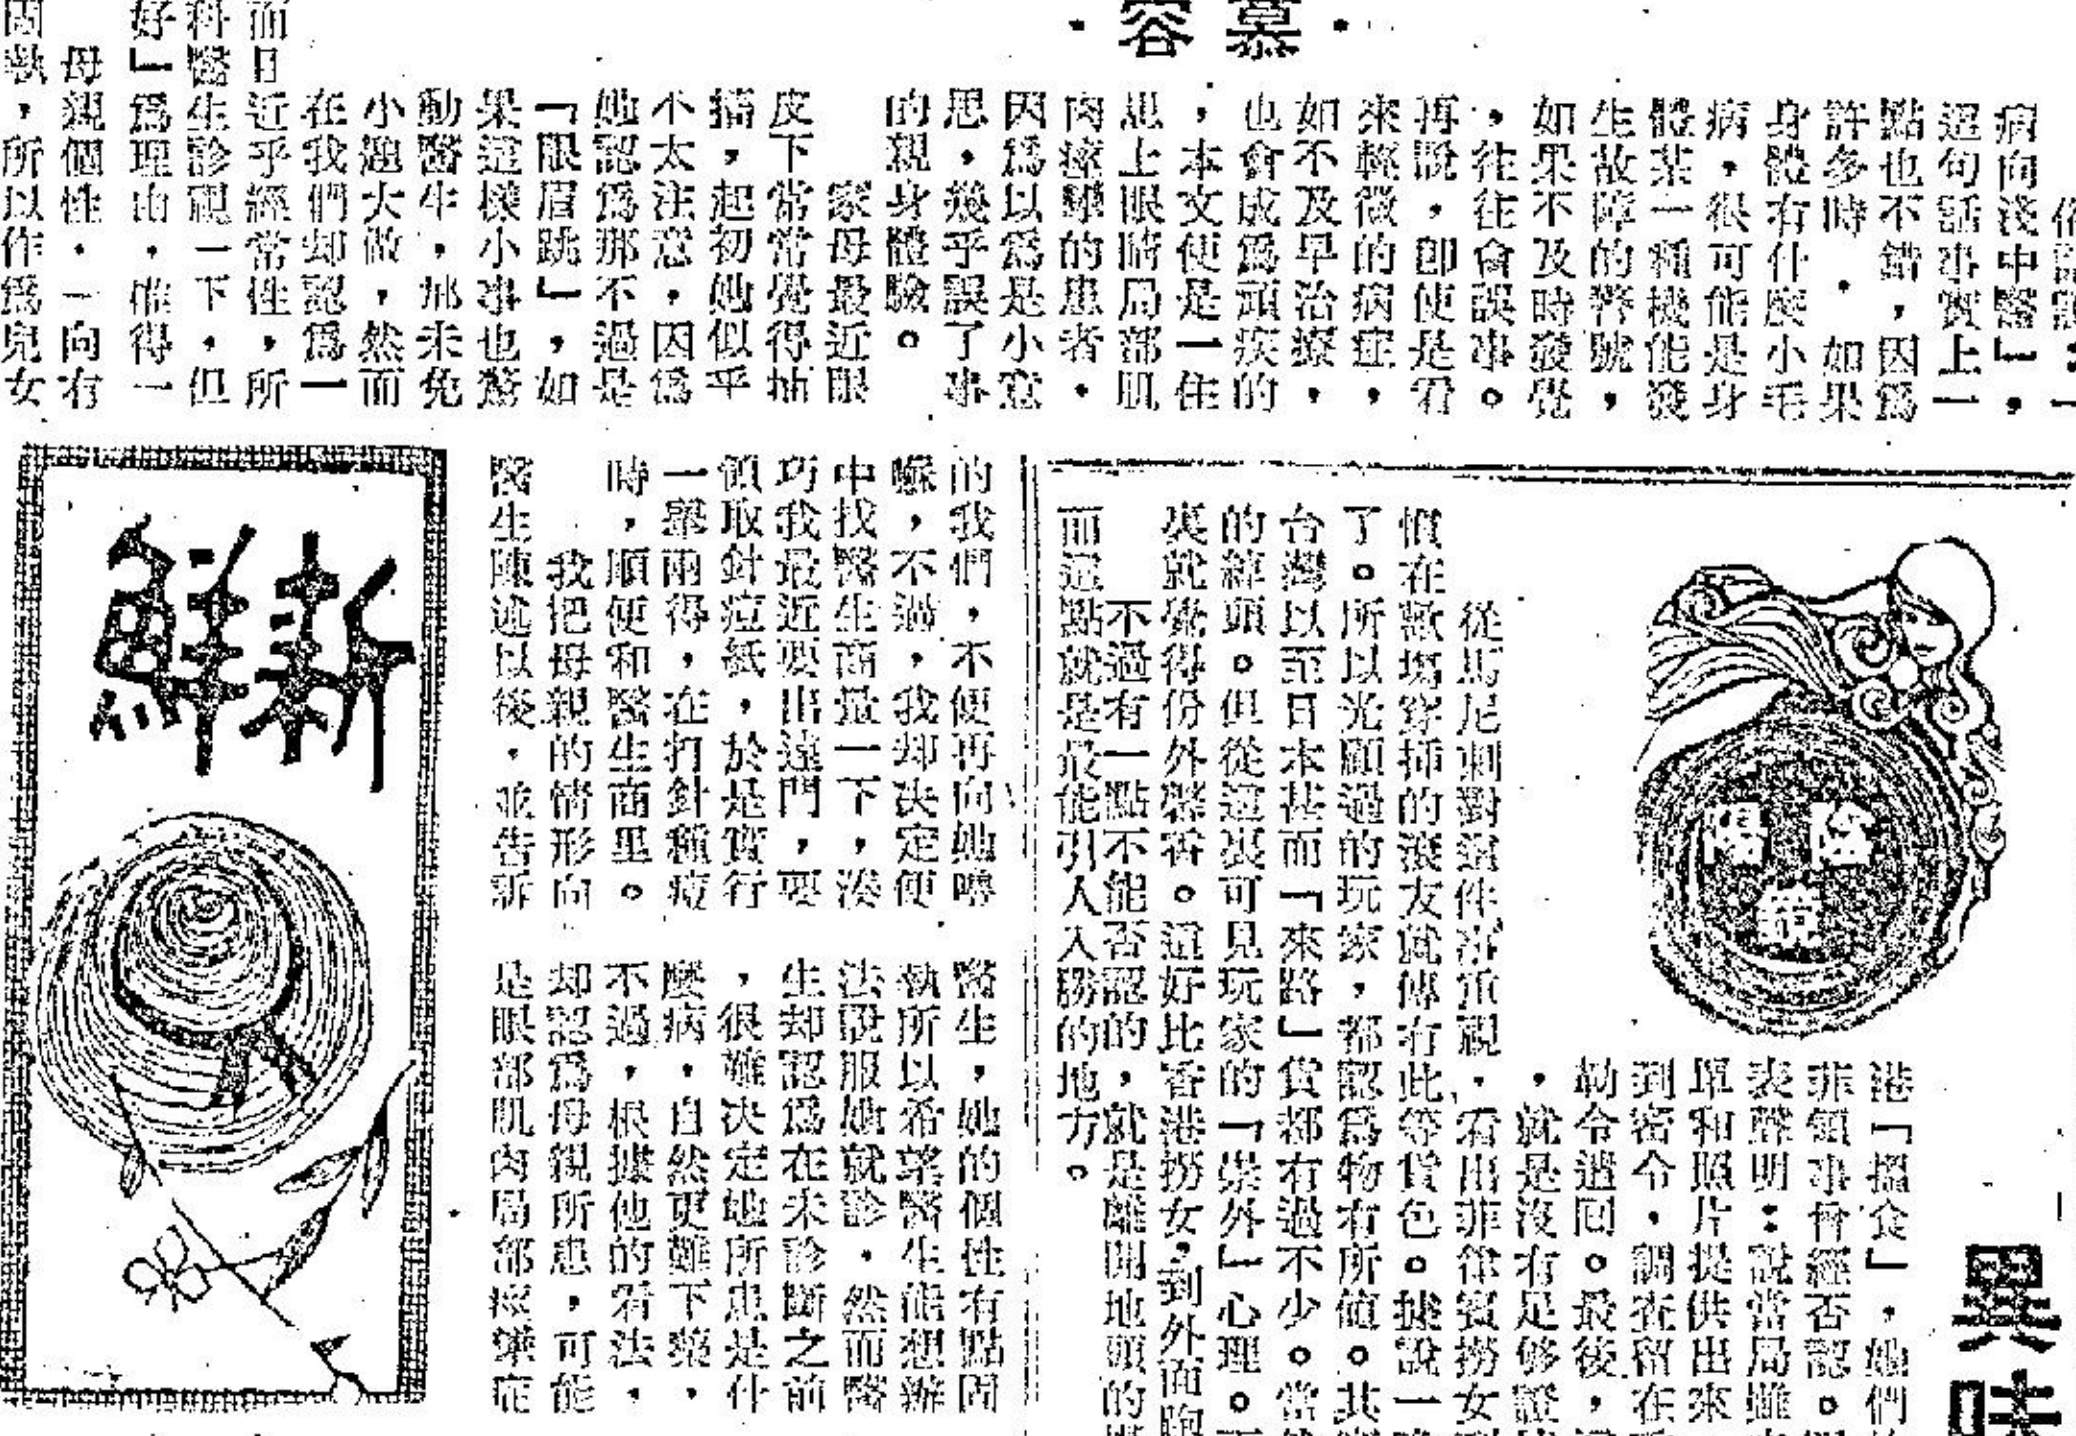 ·慕容·
俗語說：一
病向淺中醫」，
這句話事實上一
點也不錯，因爲
許多時．如果
身體有什麼小毛
病，很可能是身
體某一種機能發
生故障的警號，
如果不及時發覺
，往往會誤事。
再說，卽使是看
來輕微的病症，
如不及早治療，
也會成爲頑疾的
，本文便是一住
患上眼睛局部肌
肉痙攣的患者．
因爲以爲是小意
思，幾乎誤了事
的親身體驗。
家母最近眼
皮下常常覺得抽
搐，起初她似乎
不太注意，因爲
她認爲那不過是
「眼眉跳」，如
果這樣小事也驚
動醫生，那未免
小題大做，然而
在我們却認爲一
而且近乎經常性，所
科醫生診視一下，但
好」爲理由，得一
母親個性．一向有
固執，所以作爲兒女
的我們，不便再向她嚕
囌，不過，我却决定便
中找醫生商量一下，湊
巧我最近要出遠門，要
領取針痘紙，於是實行
一舉兩得，在打針種痘
時，順便和醫生商里。
我把母親的情形向
醫生陳述以後，並告訴
醫生，她的個性有點固
執所以希望醫生能想辦
法說服她就診．然而醫
生却認爲在未診斷之前
，很難决定她所患是什
麼病，自然更難下藥，
不過，根據他的看法，
却認爲母親所患，可能
是眼部肌肉局部痙攣症
新鮮
陰陽鏡
異味
港「搵食」，她們
菲領事曾經否認。
表聲明：說當局雖
單和照片提供出來
到密令，調查留在
勒令遣回。最後，
，就是沒有足够證
從馬尼剌對這件事重視．看出菲律賓撈女
慣在歡塲穿插的滾友就傳有此等貨色。據說一
了。所以光顧過的玩家，都認爲物有所值。其
台灣以至日本甚而「來路」貨都有過不少。當
的綽頭。但從這裏可見玩家的「崇外」心理。
裏就覺得份外馨香。這好比香港撈女，到外面跑
不過有一點不能否認的，就是離開地頭的
而這點就是最能引人入勝的地方。